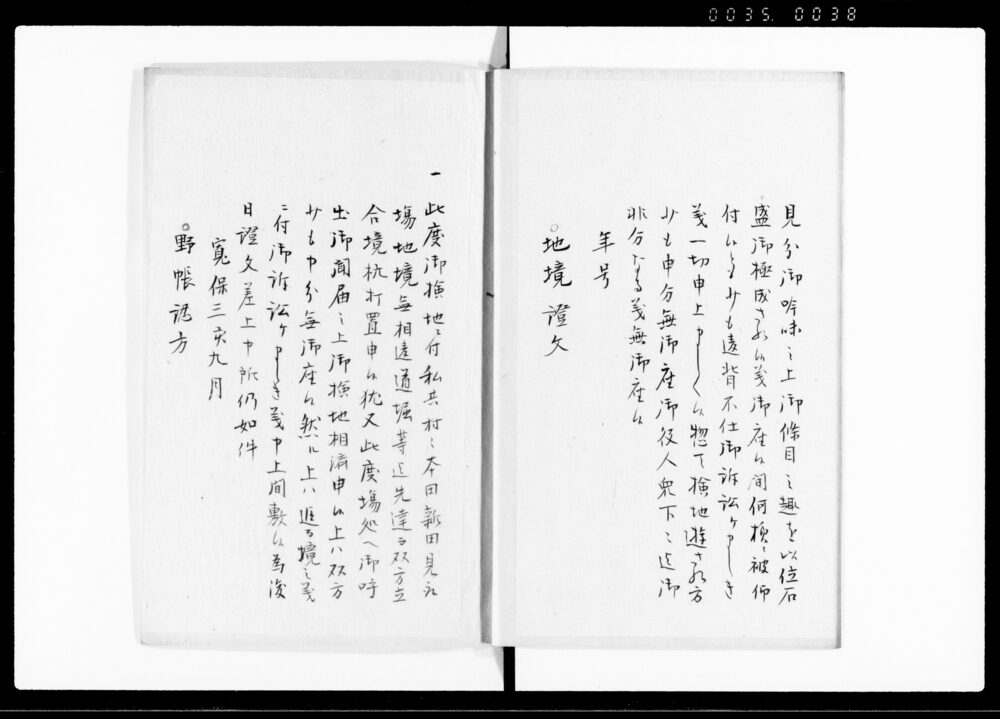 0035. 0038
見分御吟味之上御條目之趣を以位石
盛御極成され候義御座候間何様ニ被仰
付候とも少も違背不仕御訴訟ケましき
義一切申上ましく候惣て検地遊され方
少も申分無御座御役人衆下々迄御
非分なる義無御座候
年号
○地境證文
一此度御検地ニ付私共村々本田新田見取
場地境無相違道堀等迄先達而双方立
合境杭打置申候猶又此度場処へ御呼
出御聞届之上御検地相済申候上ハ双方
少も申分無御座候然ル上ハ追而境之義
ニ付御訴訟ケましき義申上間敷候為後
日證文差上申所仍如件
寛保三亥九月
○野帳認方